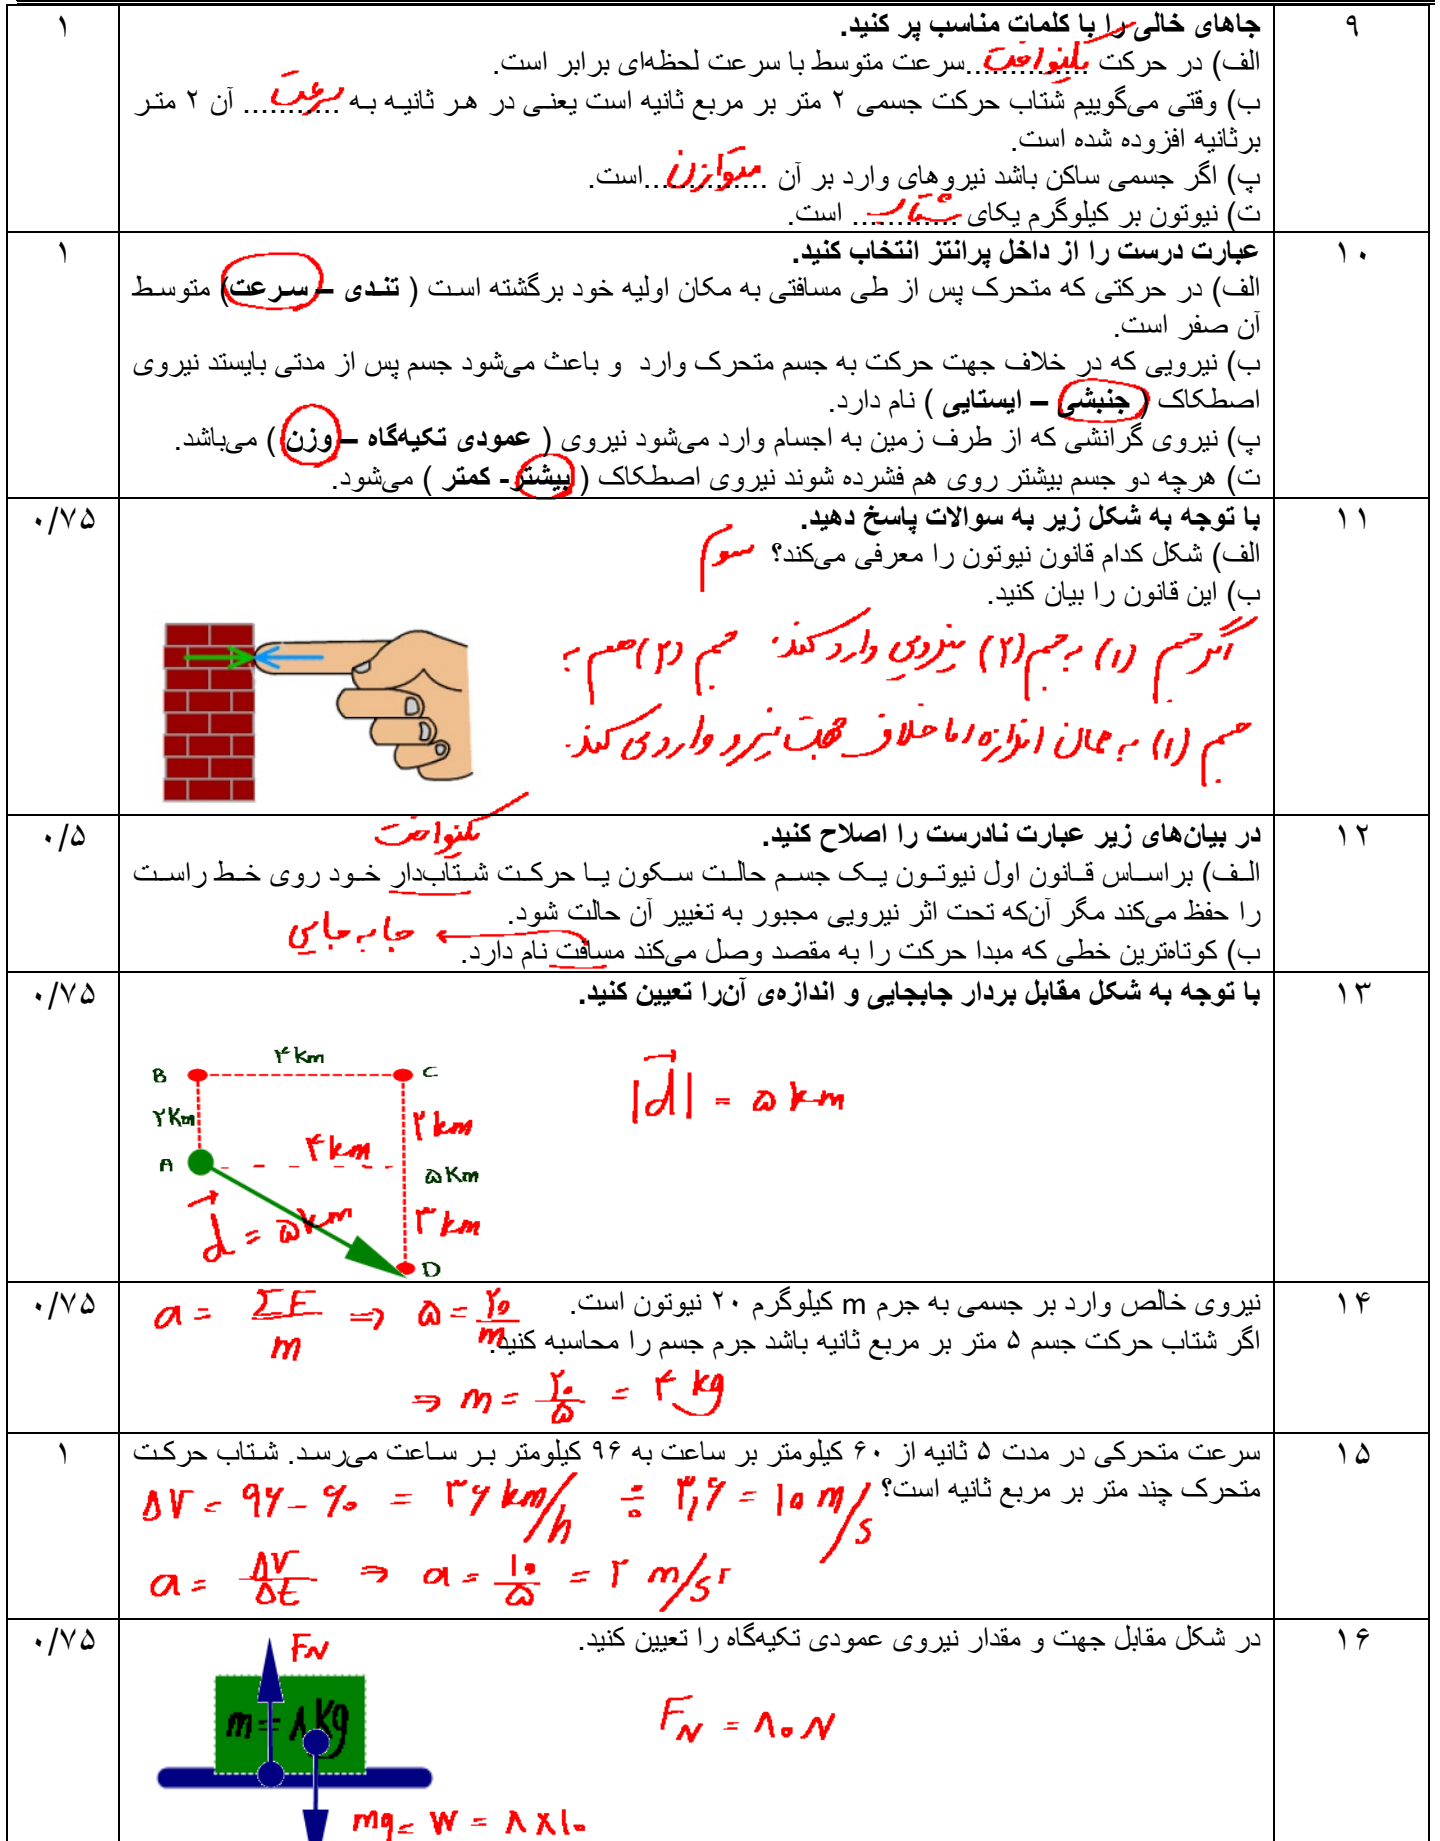 ۹
جاهای خالی را با کلمات مناسب پر کنید.
۱
الف) در حرکت .............. سرعت متوسط با سرعت لحظه‌ای برابر است.
یکنواخت
ب) وقتی می‌گوییم شتاب حرکت جسمی ۲ متر بر مربع ثانیه است یعنی در هر ثانیه به ........... آن ۲ متر
سرعت
برثانیه افزوده شده است.
پ) اگر جسمی ساکن باشد نیروهای وارد بر آن ..............است.
متوازن
ت) نیوتون بر کیلوگرم یکای ............ است.
شتاب
۱۰
عبارت درست را از داخل پرانتز انتخاب کنید.
۱
الف) در حرکتی که متحرک پس از طی مسافتی به مکان اولیه خود برگشته است ( تندی – سرعت) متوسط
آن صفر است.
ب) نیرویی که در خلاف جهت حرکت به جسم متحرک وارد و باعث می‌شود جسم پس از مدتی بایستد نیروی
اصطکاک ( جنبشی – ایستایی ) نام دارد.
پ) نیروی گرانشی که از طرف زمین به اجسام وارد می‌شود نیروی ( عمودی تکیه‌گاه – وزن ) می‌باشد.
ت) هرچه دو جسم بیشتر روی هم فشرده شوند نیروی اصطکاک ( بیشتر- کمتر ) می‌شود.
۱۱
با توجه به شکل زیر به سوالات پاسخ دهید.
۰/۷۵
الف) شکل کدام قانون نیوتون را معرفی می‌کند؟ سوم
ب) این قانون را بیان کنید.
اگر جسم (۱) به جسم (۲) نیرویی وارد کند، جسم (۲) هم به
جسم (۱) به همان اندازه اما خلاف جهت نیرو وارد می کند.
۱۲
در بیان‌های زیر عبارت نادرست را اصلاح کنید.
۰/۵
یکنواخت
الف) براساس قانون اول نیوتون یک جسم حالت سکون یا حرکت شتاب‌دار خود روی خط راست
را حفظ می‌کند مگر آن‌که تحت اثر نیرویی مجبور به تغییر آن حالت شود.
جابه جایی
ب) کوتاه‌ترین خطی که مبدا حرکت را به مقصد وصل می‌کند مسافت نام دارد.
۱۳
با توجه به شکل مقابل بردار جابجایی و اندازه‌ی آن‌را تعیین کنید.
۰/۷۵
۴ Km
B
C
۲ Km
۲ km
A
۴ km
۵ Km
۳ km
d = ۵ km
D
|d| = ۵ km
۱۴
نیروی خالص وارد بر جسمی به جرم m کیلوگرم ۲۰ نیوتون است.
۰/۷۵
a = ΣF/m ⇒ ۵ = ۲۰/m
اگر شتاب حرکت جسم ۵ متر بر مربع ثانیه باشد جرم جسم را محاسبه کنید.
⇒ m = ۲۰/۵ = ۴ kg
۱۵
سرعت متحرکی در مدت ۵ ثانیه از ۶۰ کیلومتر بر ساعت به ۹۶ کیلومتر بر ساعت می‌رسد. شتاب حرکت
۱
متحرک چند متر بر مربع ثانیه است؟
ΔV = ۹۶ - ۶۰ = ۳۶ km/h ÷ ۳,۶ = ۱۰ m/s
a = ΔV/Δt ⇒ a = ۱۰/۵ = ۲ m/s۲
۱۶
در شکل مقابل جهت و مقدار نیروی عمودی تکیه‌گاه را تعیین کنید.
۰/۷۵
FN
m = ۸ Kg
FN = ۸۰ N
mg = W = ۸ × ۱۰